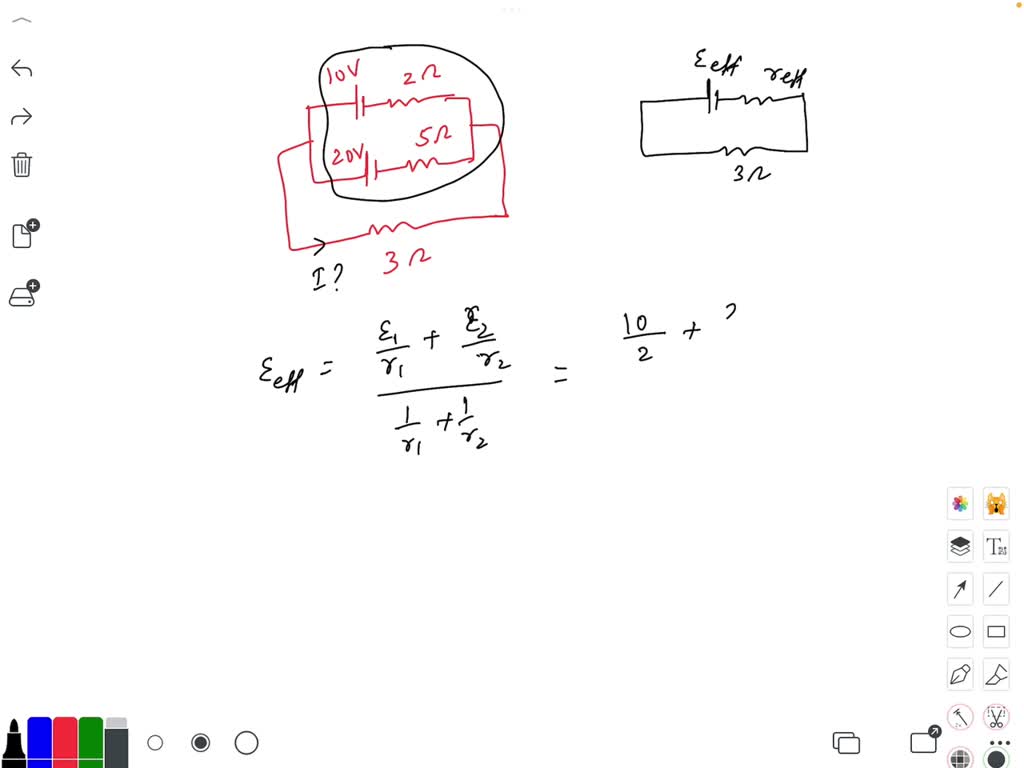 10V 2Ω
20V 5Ω
3Ω
I?
εeff reff
3Ω
εeff = (ε1/r1 + ε2/r2) / (1/r1 + 1/r2) = 10/2 +